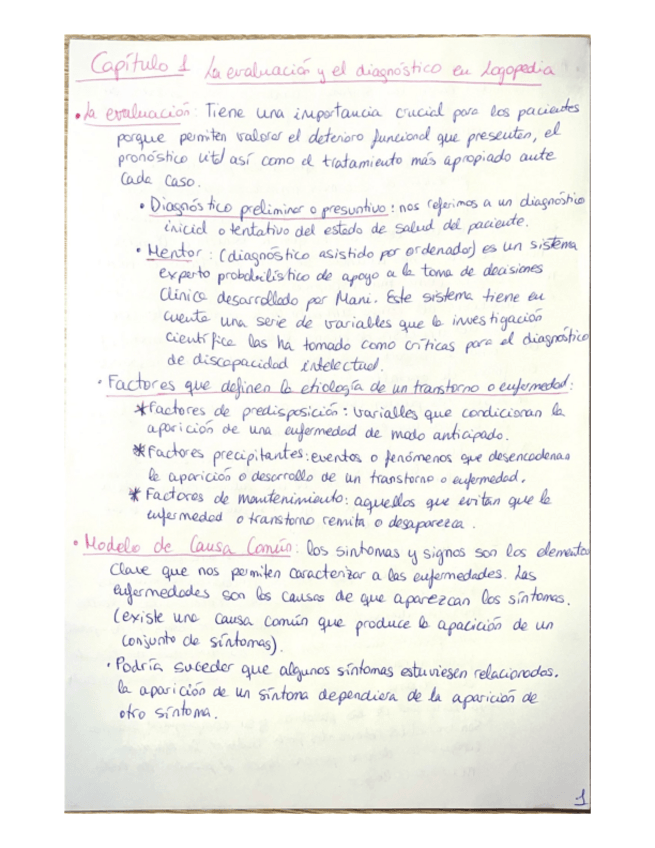 Capítulo 1 La evaluación y el diagnóstico en Logopedia
• La evaluación: Tiene una importancia crucial para los pacientes
porque permiten valorar el deterioro funcional que presenten, el
pronóstico vital así como el tratamiento más apropiado ante
cada caso.
• Diagnóstico preliminar o presuntivo: nos referimos a un diagnóstico
inicial o tentativo del estado de salud del paciente.
• Mentor: (diagnóstico asistido por ordenador) es un sistema
experto probabilístico de apoyo a la toma de decisiones
clínica desarrollado por Mani. Este sistema tiene en
cuenta una serie de variables que la investigación
científica las ha tomado como críticas para el diagnóstico
de discapacidad intelectual.
• Factores que definen la etiología de un transtorno o enfermedad:
* Factores de predisposición: variables que condicionan la
aparición de una enfermedad de modo anticipado.
* Factores precipitantes: eventos o fenómenos que desencadenan
la aparición o desarrollo de un transtorno o enfermedad.
* Factores de mantenimiento: aquellos que evitan que la
enfermedad o transtorno remita o desaparezca.
• Modelo de Causa Común: los sintomas y signos son los elementos
clave que nos permiten caracterizar a las enfermedades. Las
enfermedades son las causas de que aparezcan los síntomas.
(existe una causa común que produce la aparición de un
conjunto de síntomas).
• Podría suceder que algunos síntomas estuviesen relacionados.
la aparición de un síntoma dependiera de la aparición de
otro síntoma.
1